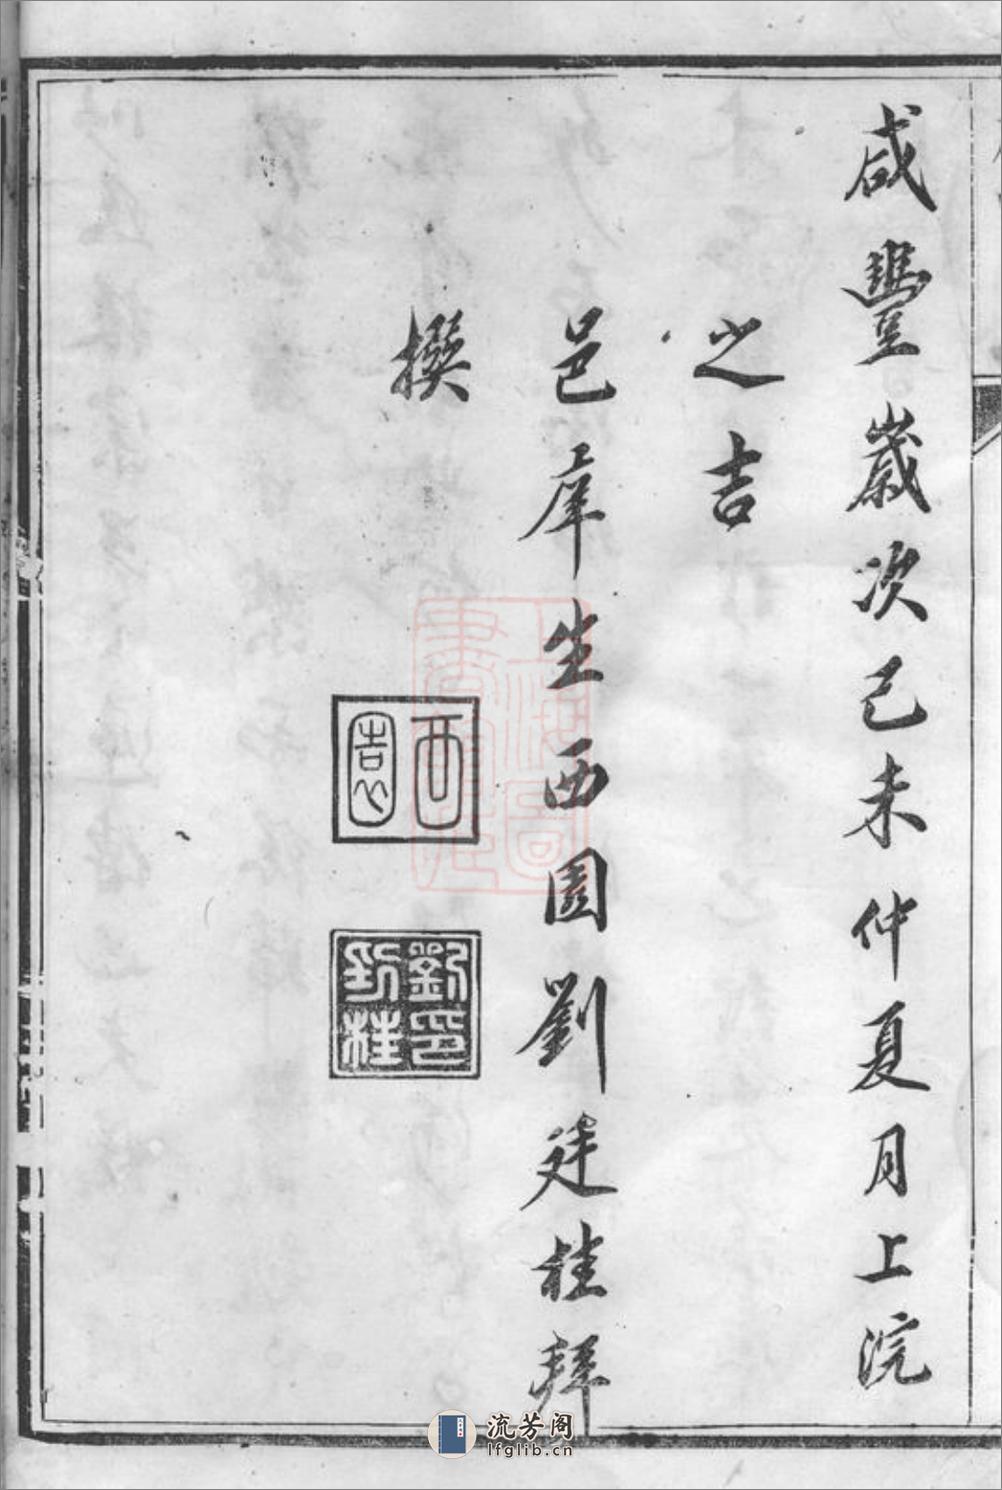 咸豐歲次己未仲夏月上浣
之吉
邑庠生西園劉廷桂拜
撰
西園
劉印廷桂
上海圖書館藏
流芳阁
lfglib.cn